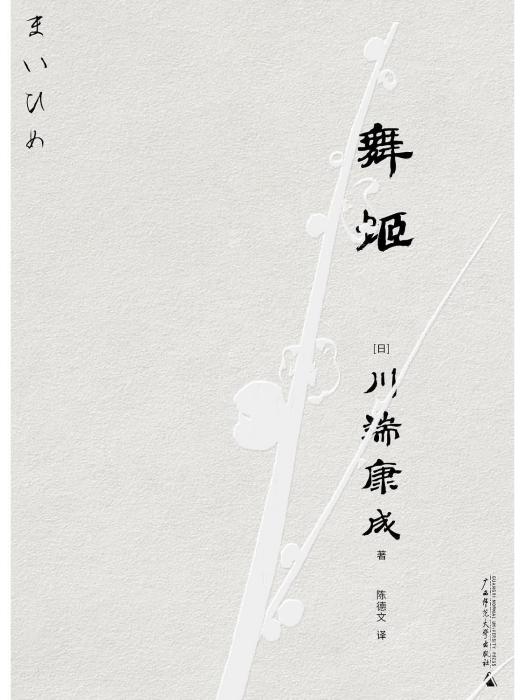 まいひめ
舞姬
[日]
川端康成
著
陈德文 译
广西师范大学出版社
GUANGXI NORMAL UNIVERSITY PRESS